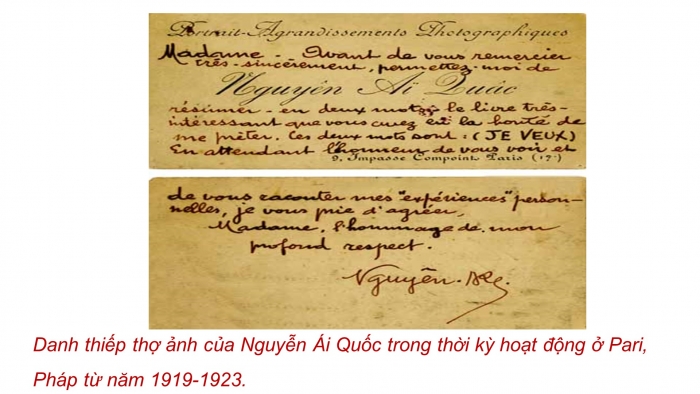 Portrait-Agrandissements Photographiques
Madame - Avant de vous remercier
très-sincèrement, permettez-moi de
Nguyên Ai Quâc
résumer - en deux mots le livre très-
intéressant que vous avez eu la bonté de
me prêter. Ces deux mots sont : (JE VEUX)
En attendant l'honneur de vous voir et
9, Impasse Compoint Paris (17e)
de vous raconter mes "expériences" person-
nelles, je vous prie d'agréer,
Madame, l'hommage de mon
profond respect.
Nguyên
Danh thiếp thợ ảnh của Nguyễn Ái Quốc trong thời kỳ hoạt động ở Pari,
Pháp từ năm 1919-1923.